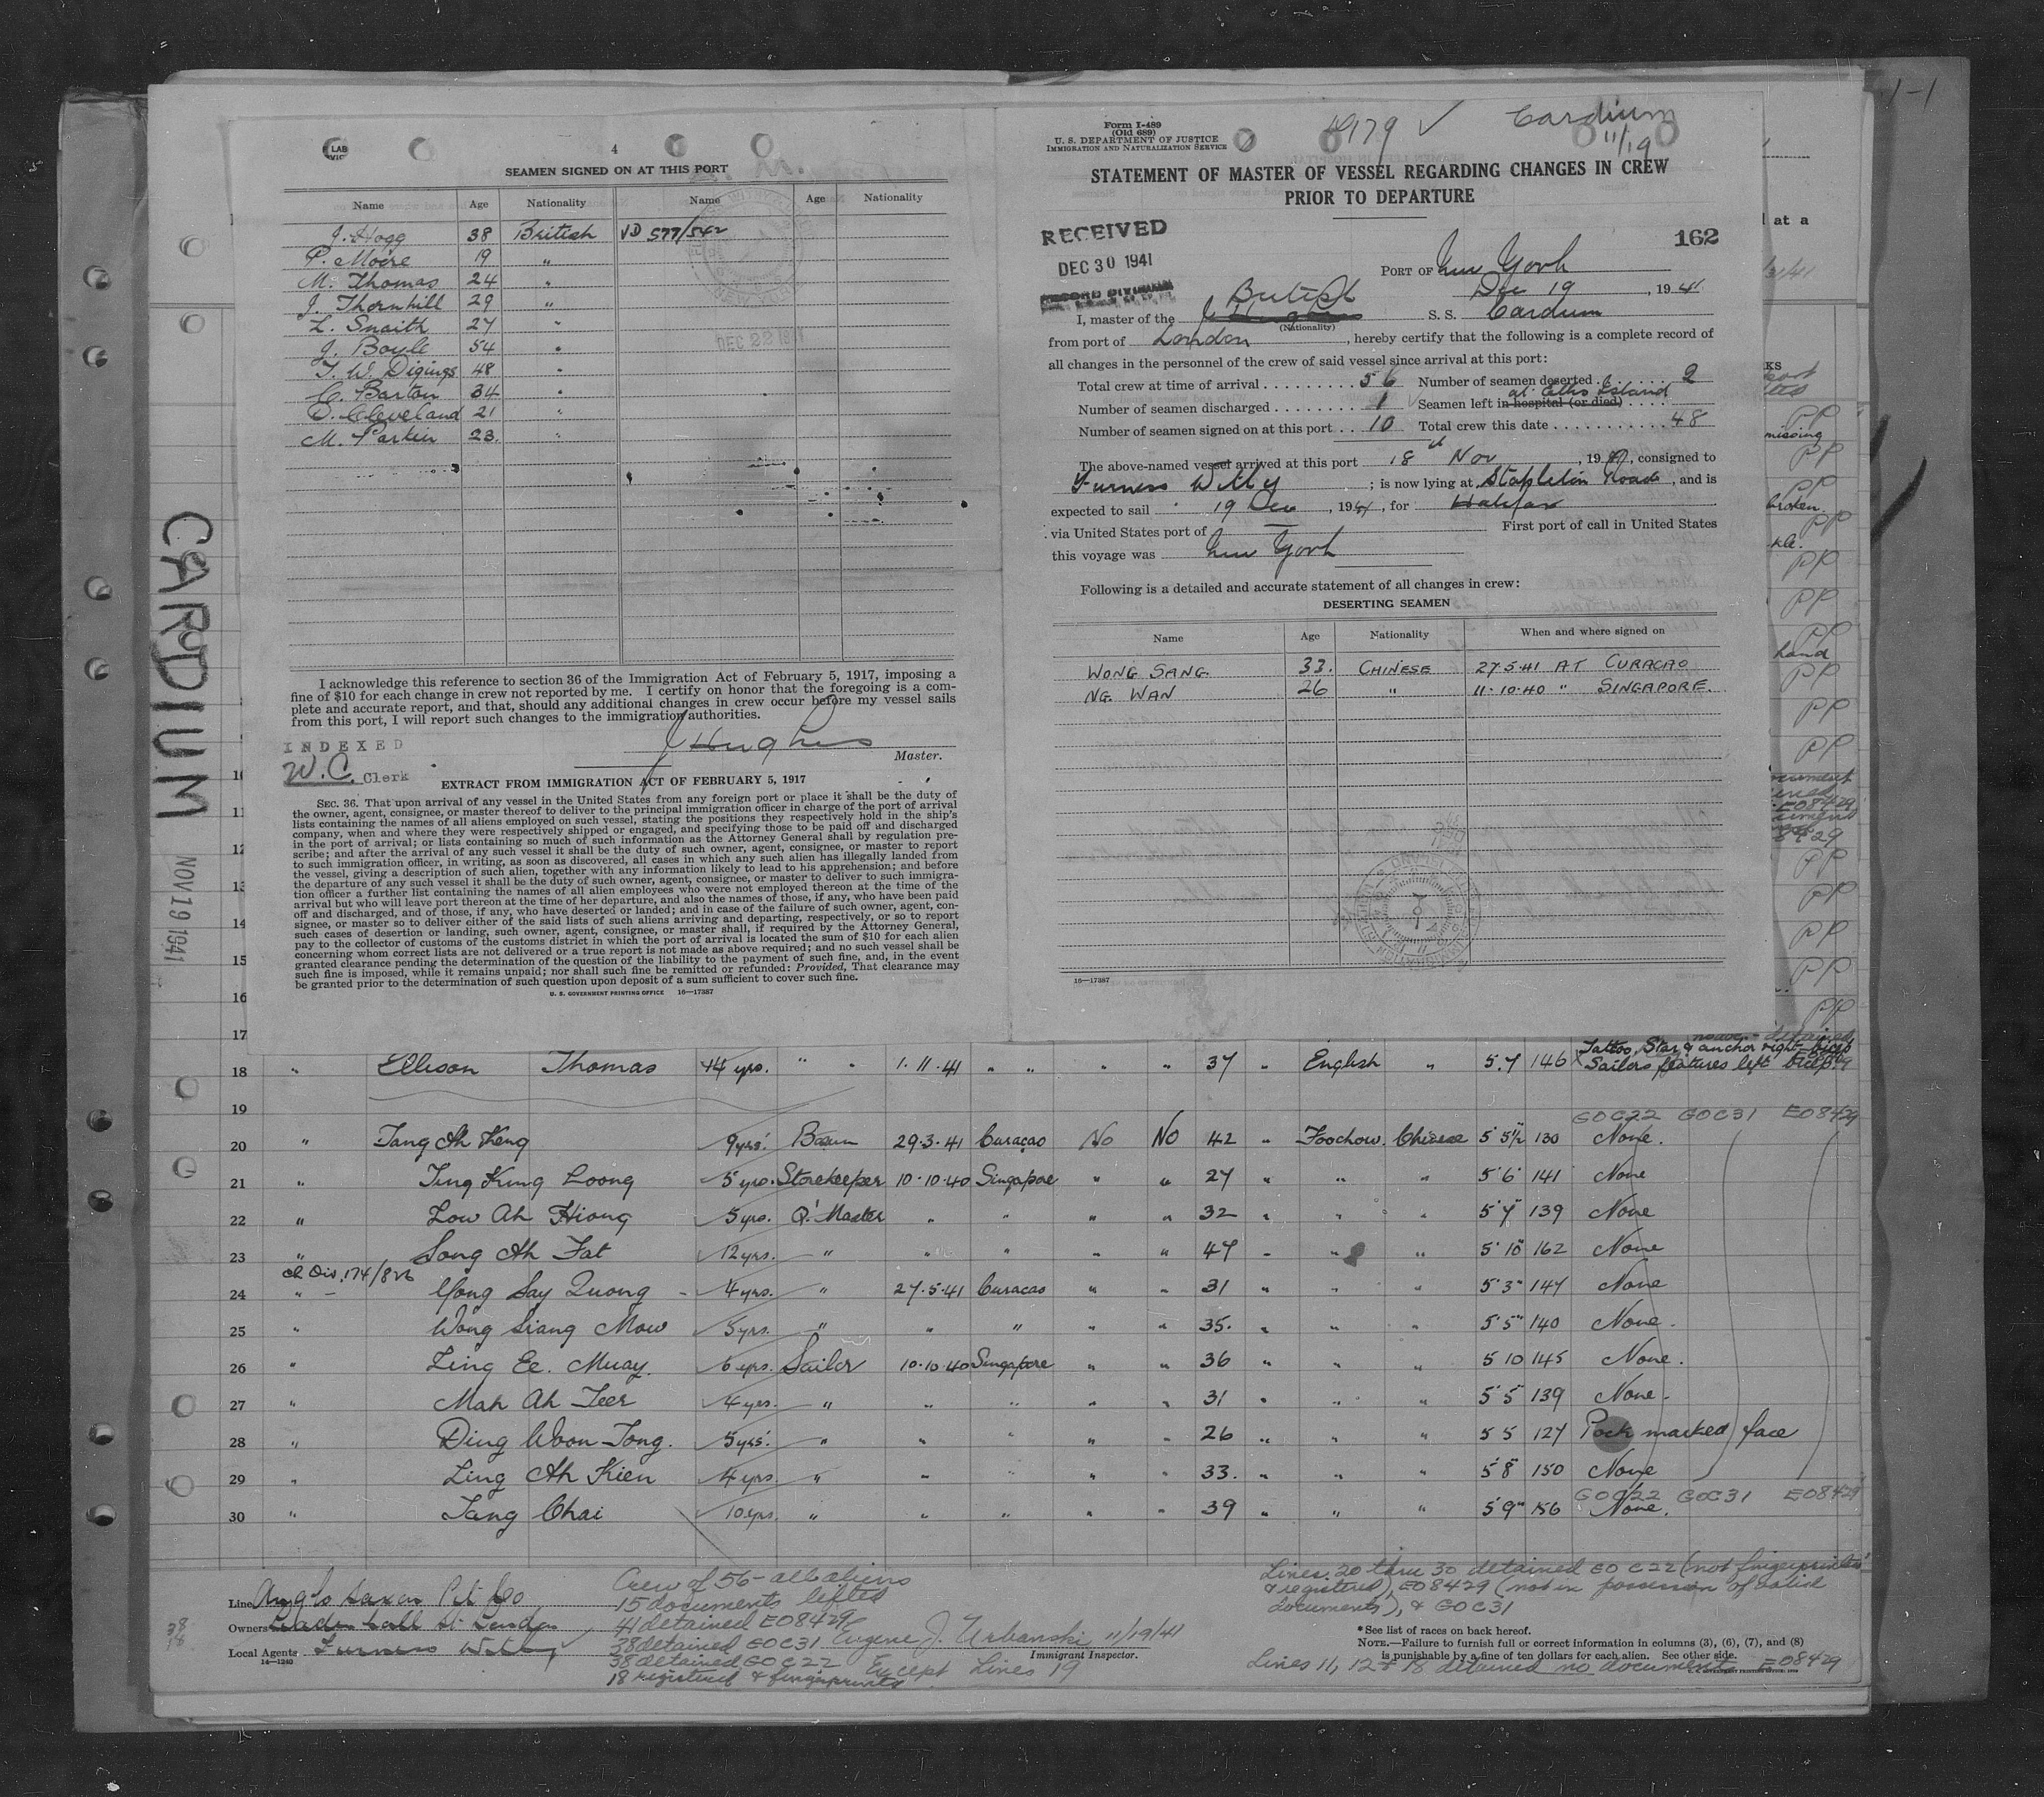 1-1
4
SEAMEN SIGNED ON AT THIS PORT
Name Age Nationality Name Age Nationality
J. Hogg 38 British VD 577/542
P. Moore 19 "
M. Thomas 24 "
J. Thornhill 29 "
L. Snaith 27 "
J. Boyle 54 "
T. W. Digings 48 "
C. Barton 34 "
D. Cleveland 21 "
M. Parkin 23. "
DEC 22 1941
I acknowledge this reference to section 36 of the Immigration Act of February 5, 1917, imposing a
fine of $10 for each change in crew not reported by me. I certify on honor that the foregoing is a com-
plete and accurate report, and that, should any additional changes in crew occur before my vessel sails
from this port, I will report such changes to the immigration authorities.
J Hughes
Master.
INDEXED
W.C. Clerk
EXTRACT FROM IMMIGRATION ACT OF FEBRUARY 5, 1917
SEC. 36. That upon arrival of any vessel in the United States from any foreign port or place it shall be the duty of
the owner, agent, consignee, or master thereof to deliver to the principal immigration officer in charge of the port of arrival
lists containing the names of all aliens employed on such vessel, stating the positions they respectively hold in the ship's
company, when and where they were respectively shipped or engaged, and specifying those to be paid off and discharged
in the port of arrival; or lists containing so much of such information as the Attorney General shall by regulation pre-
scribe; and after the arrival of any such vessel it shall be the duty of such owner, agent, consignee, or master to report
to such immigration officer, in writing, as soon as discovered, all cases in which any such alien has illegally landed from
the vessel, giving a description of such alien, together with any information likely to lead to his apprehension; and before
the departure of any such vessel it shall be the duty of such owner, agent, consignee, or master to deliver to such immigra-
tion officer a further list containing the names of all alien employees who were not employed thereon at the time of the
arrival but who will leave port thereon at the time of her departure, and also the names of those, if any, who have been paid
off and discharged, and of those, if any, who have deserted or landed; and in case of the failure of such owner, agent, con-
signee, or master so to deliver either of the said lists of such aliens arriving and departing, respectively, or so to report
such cases of desertion or landing, such owner, agent, consignee, or master shall, if required by the Attorney General,
pay to the collector of customs of the customs district in which the port of arrival is located the sum of $10 for each alien
concerning whom correct lists are not delivered or a true report is not made as above required; and no such vessel shall be
granted clearance pending the determination of the question of the liability to the payment of such fine, and, in the event
such fine is imposed, while it remains unpaid; nor shall such fine be remitted or refunded: Provided, That clearance may
be granted prior to the determination of such question upon deposit of a sum sufficient to cover such fine.
U. S. GOVERNMENT PRINTING OFFICE 16—17387
Form I-489
(Old 689)
U. S. DEPARTMENT OF JUSTICE
IMMIGRATION AND NATURALIZATION SERVICE
Cardium
11/19
STATEMENT OF MASTER OF VESSEL REGARDING CHANGES IN CREW
PRIOR TO DEPARTURE
RECEIVED
DEC 30 1941
RECORD DIVISION
162
PORT OF New York
Dec 19, 1941
I, master of the British (Nationality) S. S. Cardium
from port of London, hereby certify that the following is a complete record of
all changes in the personnel of the crew of said vessel since arrival at this port:
Total crew at time of arrival 56 Number of seamen deserted 2
Number of seamen discharged 1 Seamen left in hospital (or died) at Ellis Island
Number of seamen signed on at this port 10 Total crew this date 48
The above-named vessel arrived at this port 18th Nov, 1941, consigned to
Furness Withy; is now lying at Stapleton Roads, and is
expected to sail 19 Dec, 1941, for Halifax
via United States port of First port of call in United States
this voyage was New York
Following is a detailed and accurate statement of all changes in crew:
DESERTING SEAMEN
Name Age Nationality When and where signed on
WONG SANG 33. CHINESE 27-5-41 AT CURACAO
NG. WAN 26 " 11-10-40 " SINGAPORE.
16—17387
CARDIUM
NOV 19 1941
10
11
12
13
14
15
16
17
18 " Ellison Thomas 14 yrs. " " 1.11.41 " " " " 37 " English " 5.7 146 Tattoo, Star & anchor right bicep Sailors features left bicep
19
GOC22 GOC31 E08429
20 " Tang Ah Keng 9yrs. Bosun 29.3.41 Curaçao No No 42 " Foochow Chinese 5'5½ 130 None.
21 " Ting Kung Loong 5 yrs. Storekeeper 10.10.40 Singapore " " 27 " " " 5'6" 141 None
22 " Low Ah Hiong 5yrs. Q. Master " " " " 32 " " " 5'7" 139 None
23 " Song Ah Fat 12yrs. " " " " " 47 " " " 5'10" 162 None
24 " Yong Say Quong 4yrs. " 27.5.41 Curacao " " 31 " " " 5'3" 147 None
25 " Wong Siang Mow 5yrs. " " " " " 35. " " " 5'5" 140 None.
26 " Ling Ee. Muay. 6 yrs. Sailor 10.10.40 Singapore " " 36 " " " 5 10 145 None.
27 " Mah Ah Teer 4 yrs. " " " " " 31 " " " 5'5" 139 None.
28 " Ding Woon Tong. 5yrs. " " " " " 26 " " " 5 5 127 Pock marked face
29 " Ling Ah Kien 4yrs. " " " " " 33. " " " 5'8" 150 None
GOC22 GOC31 E08429
30 " Tang Chai 10yrs. " " " " " 39 " " " 5'9" 156 None.
Line Anglo Saxon Pet Co
Owners Leadenhall St London
Local Agents Furness Withy
14—1240
Crew of 56 - all aliens
15 documents lifted
41 detained E08429
38 detained GOC31
38 detained GOC22 Except Lines 19
18 registered & fingerprinted
Eugene J. Urbanski 11/19/41
Immigrant Inspector.
Lines 20 thru 30 detained GOC22 (not fingerprinted
& registered), E08429 (not in possession of valid
documents), & GOC31
* See list of races on back hereof.
NOTE.—Failure to furnish full or correct information in columns (3), (6), (7), and (8)
is punishable by a fine of ten dollars for each alien. See other side.
Lines 11, 12 & 18 detained no document E08429